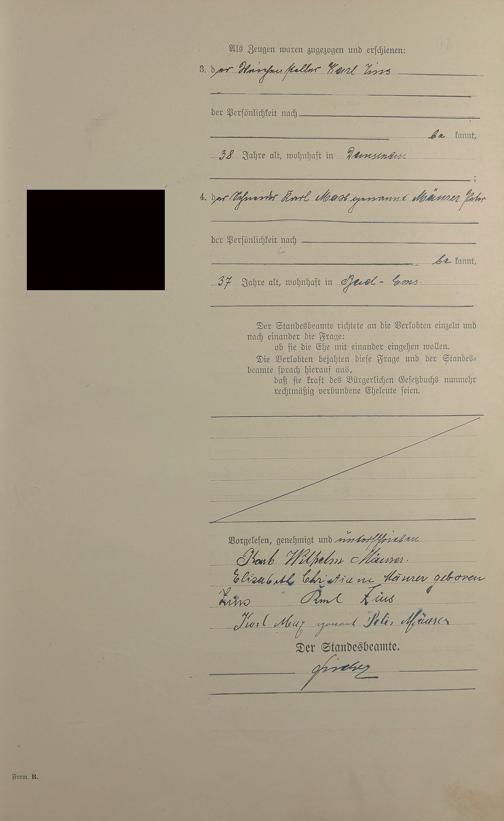 Als Zeugen waren zugezogen und erschienen:
3. der Karl Zins
der Persönlichkeit nach
be kannt,
38 Jahre alt, wohnhaft in Dausenau
;
4. der Schneider Karl genannt Mäurer
der Persönlichkeit nach
be kannt,
37 Jahre alt, wohnhaft in Bad-Ems.
Der Standesbeamte richtete an die Verlobten einzeln und
nach einander die Frage:
ob sie die Ehe mit einander eingehen wollen.
Die Verlobten bejahten diese Frage und der Standes-
beamte sprach hierauf aus,
daß sie kraft des Bürgerlichen Gesetzbuchs nunmehr
rechtmäßig verbundene Eheleute seien.
Vorgelesen, genehmigt und unterschrieben
Karl Wilhelm Mäurer.
Elisabeth Christiane Mäurer geborene
Zins Karl Zins
Karl genannt Mäurer
Der Standesbeamte.
Form. B.